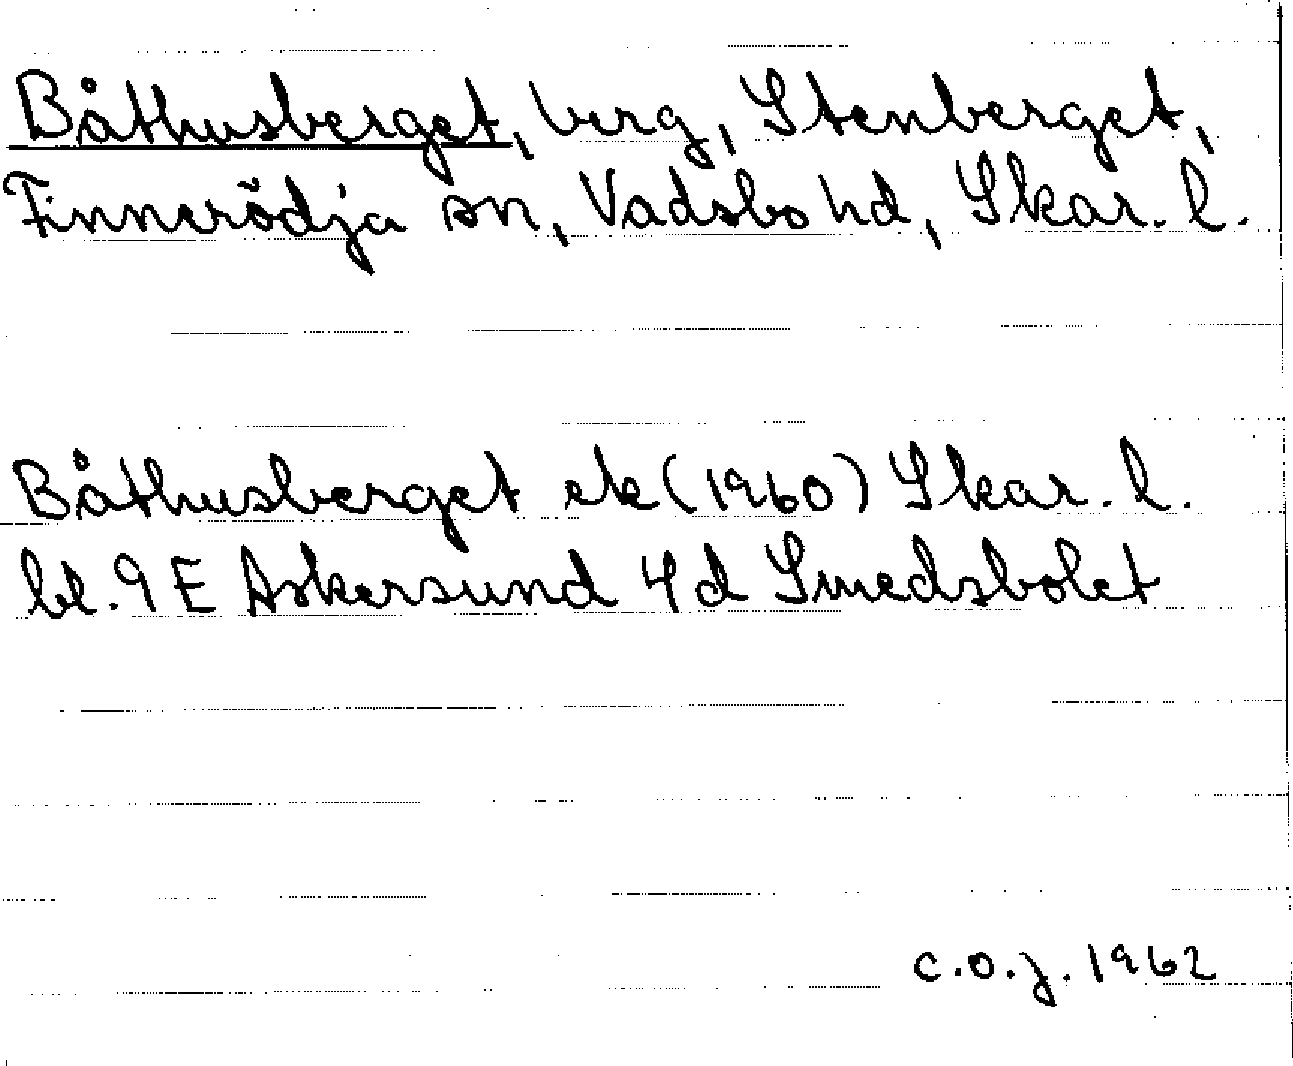 Båthusberget, berg, Stenberget,
Finnerödja sn, Vadsbo hd, Skar. l.
Båthusberget ek (1960) Skar. l.
bl. 9 E Askersund 4 d Smedsbolet
C.O.J. 1962